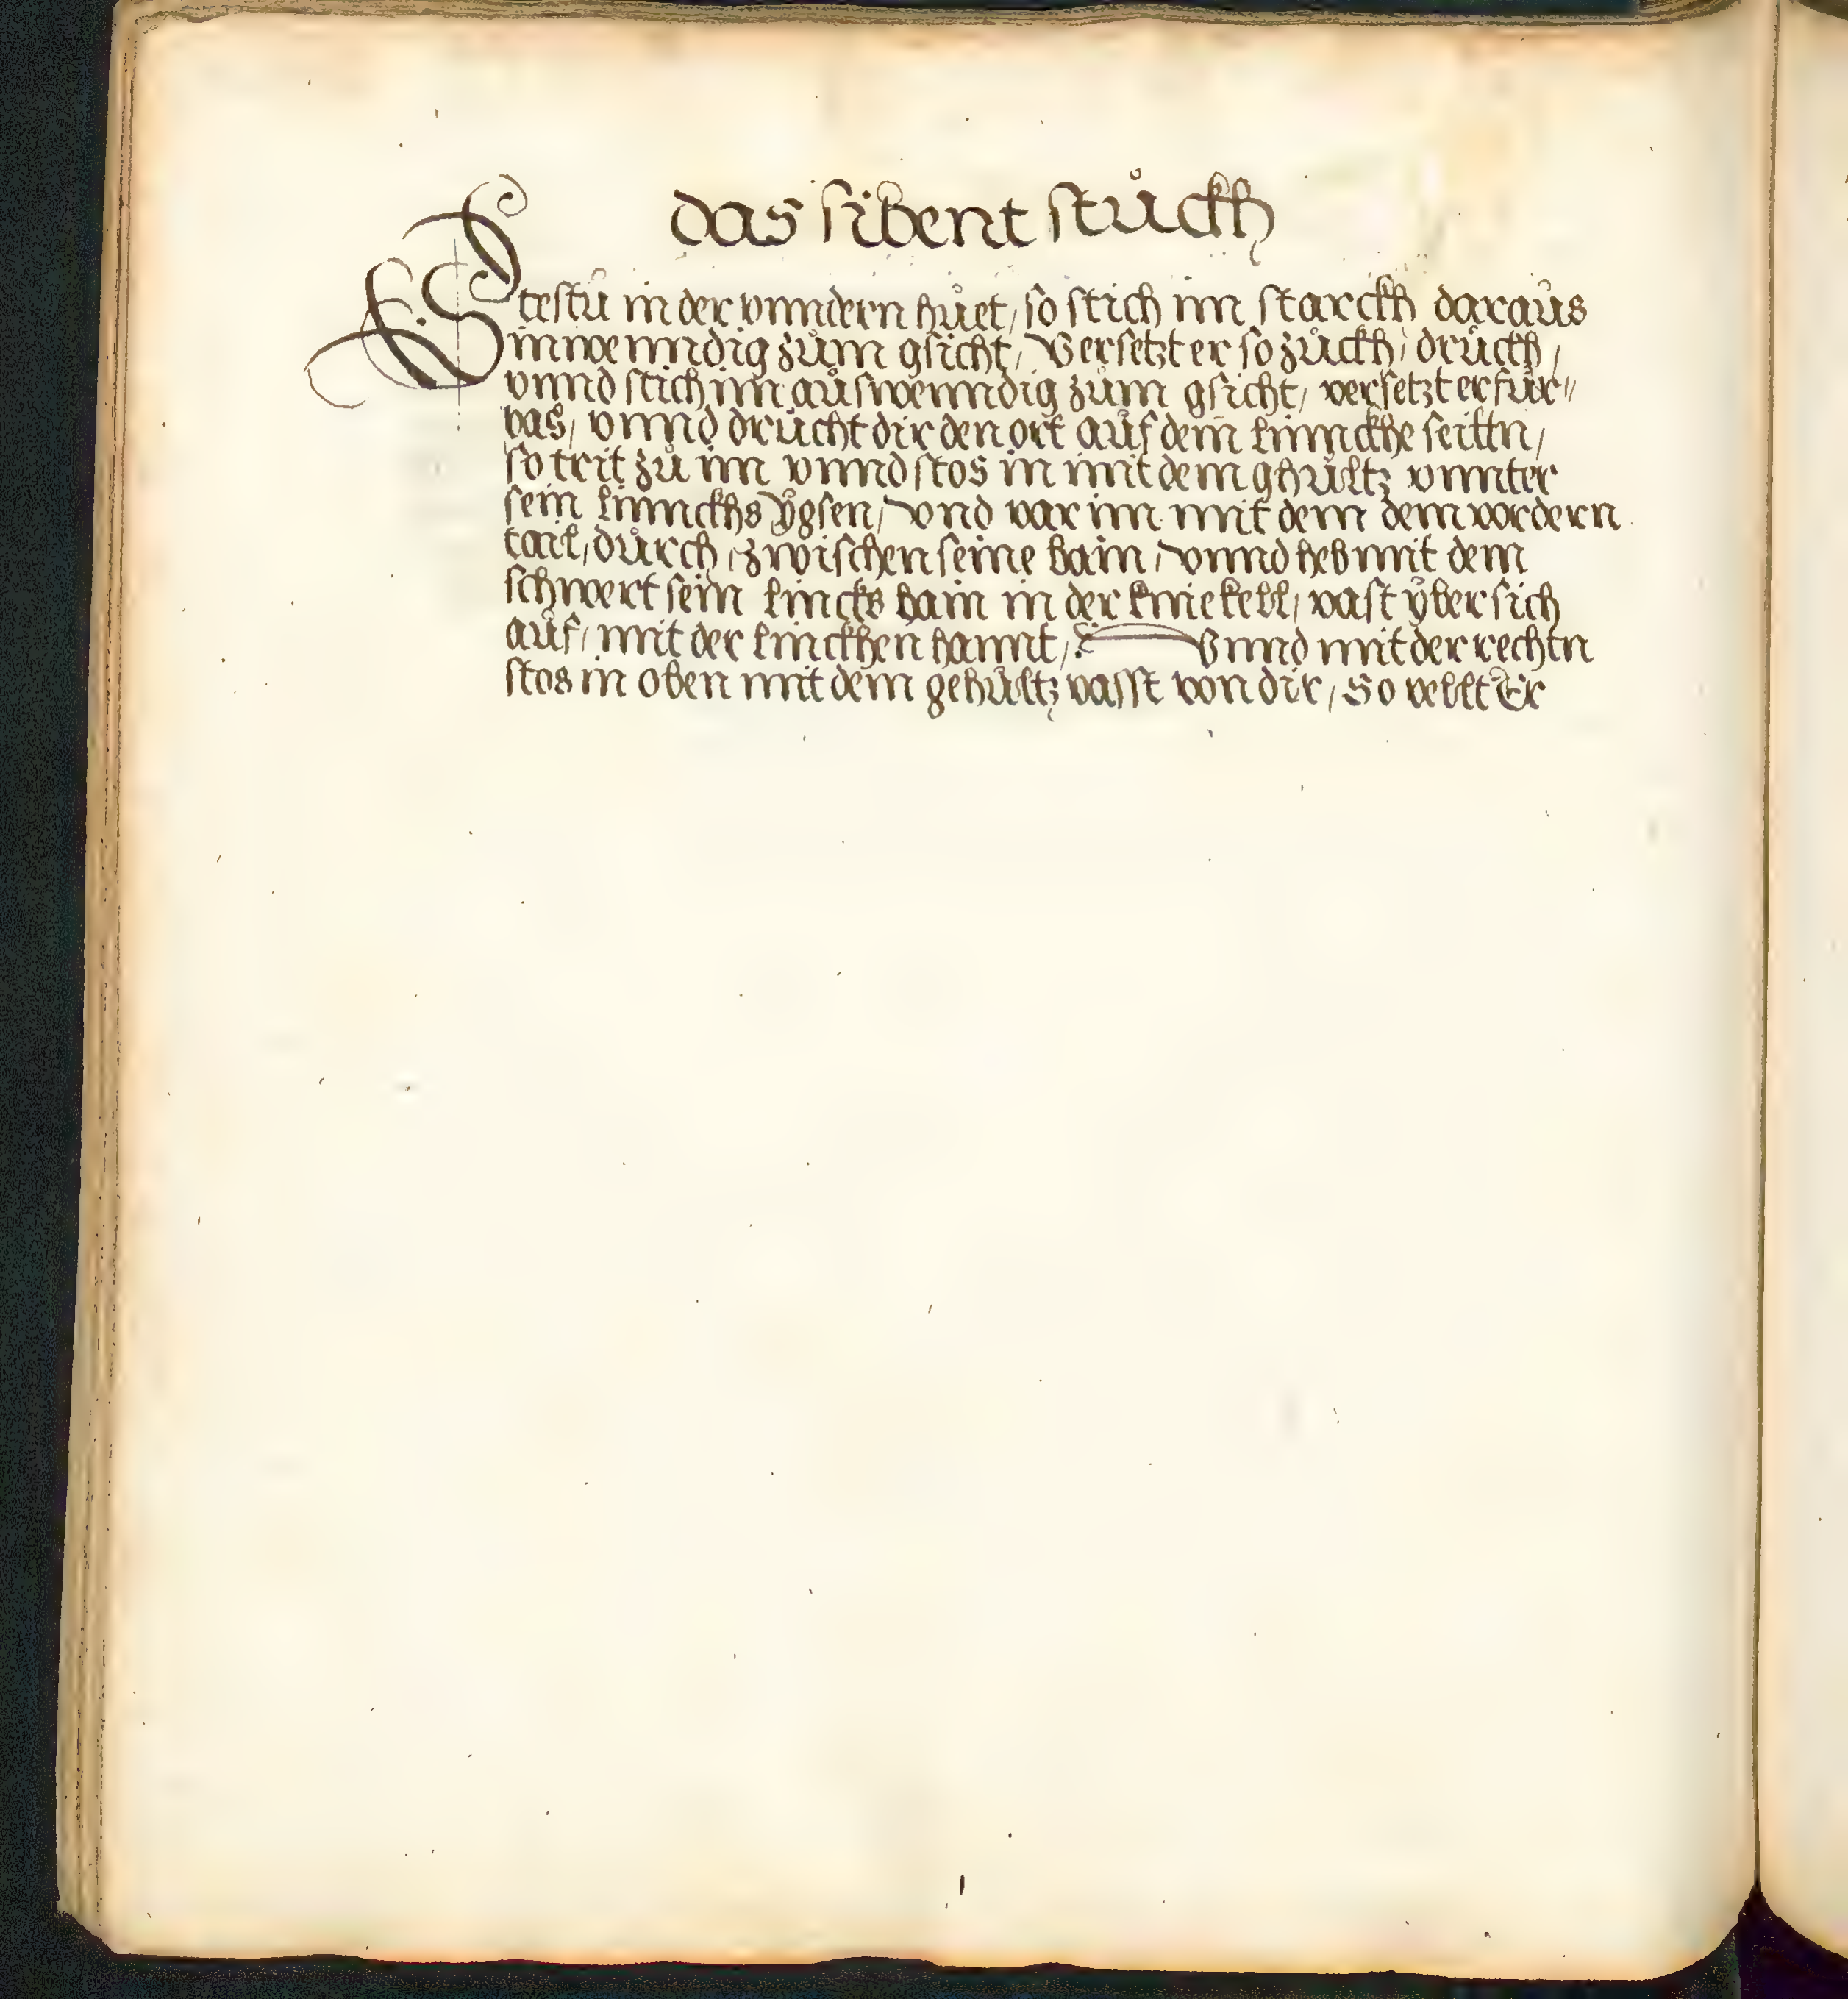 das sibent stückh
Stestu in der vnndern hůet, so stich im starckh daraůs
inwenndig zům gsicht, Versetzt er so zůckh, drůckh,
vnnd stich im aůswenndig zům gsicht, versetzt er fůr⸗
bas, vnnd drůcht dir den ort aůf dem linnckhe seittn,
so trit zů im vnnd stos in mit dem ghůltz vnnter
sein linnckhs ÿgsen, vnd var im mit dem dem vordern
tail, důrch, zwischen seine bain, vnnd heb mit dem
schwert sein lincks bain in der kniekell, vast ÿber sich
aůf, mit der linckhen hannt, Vnnd mit der rechtn
stos in oben mit dem gehůltz vasst von dir, So vellt Er